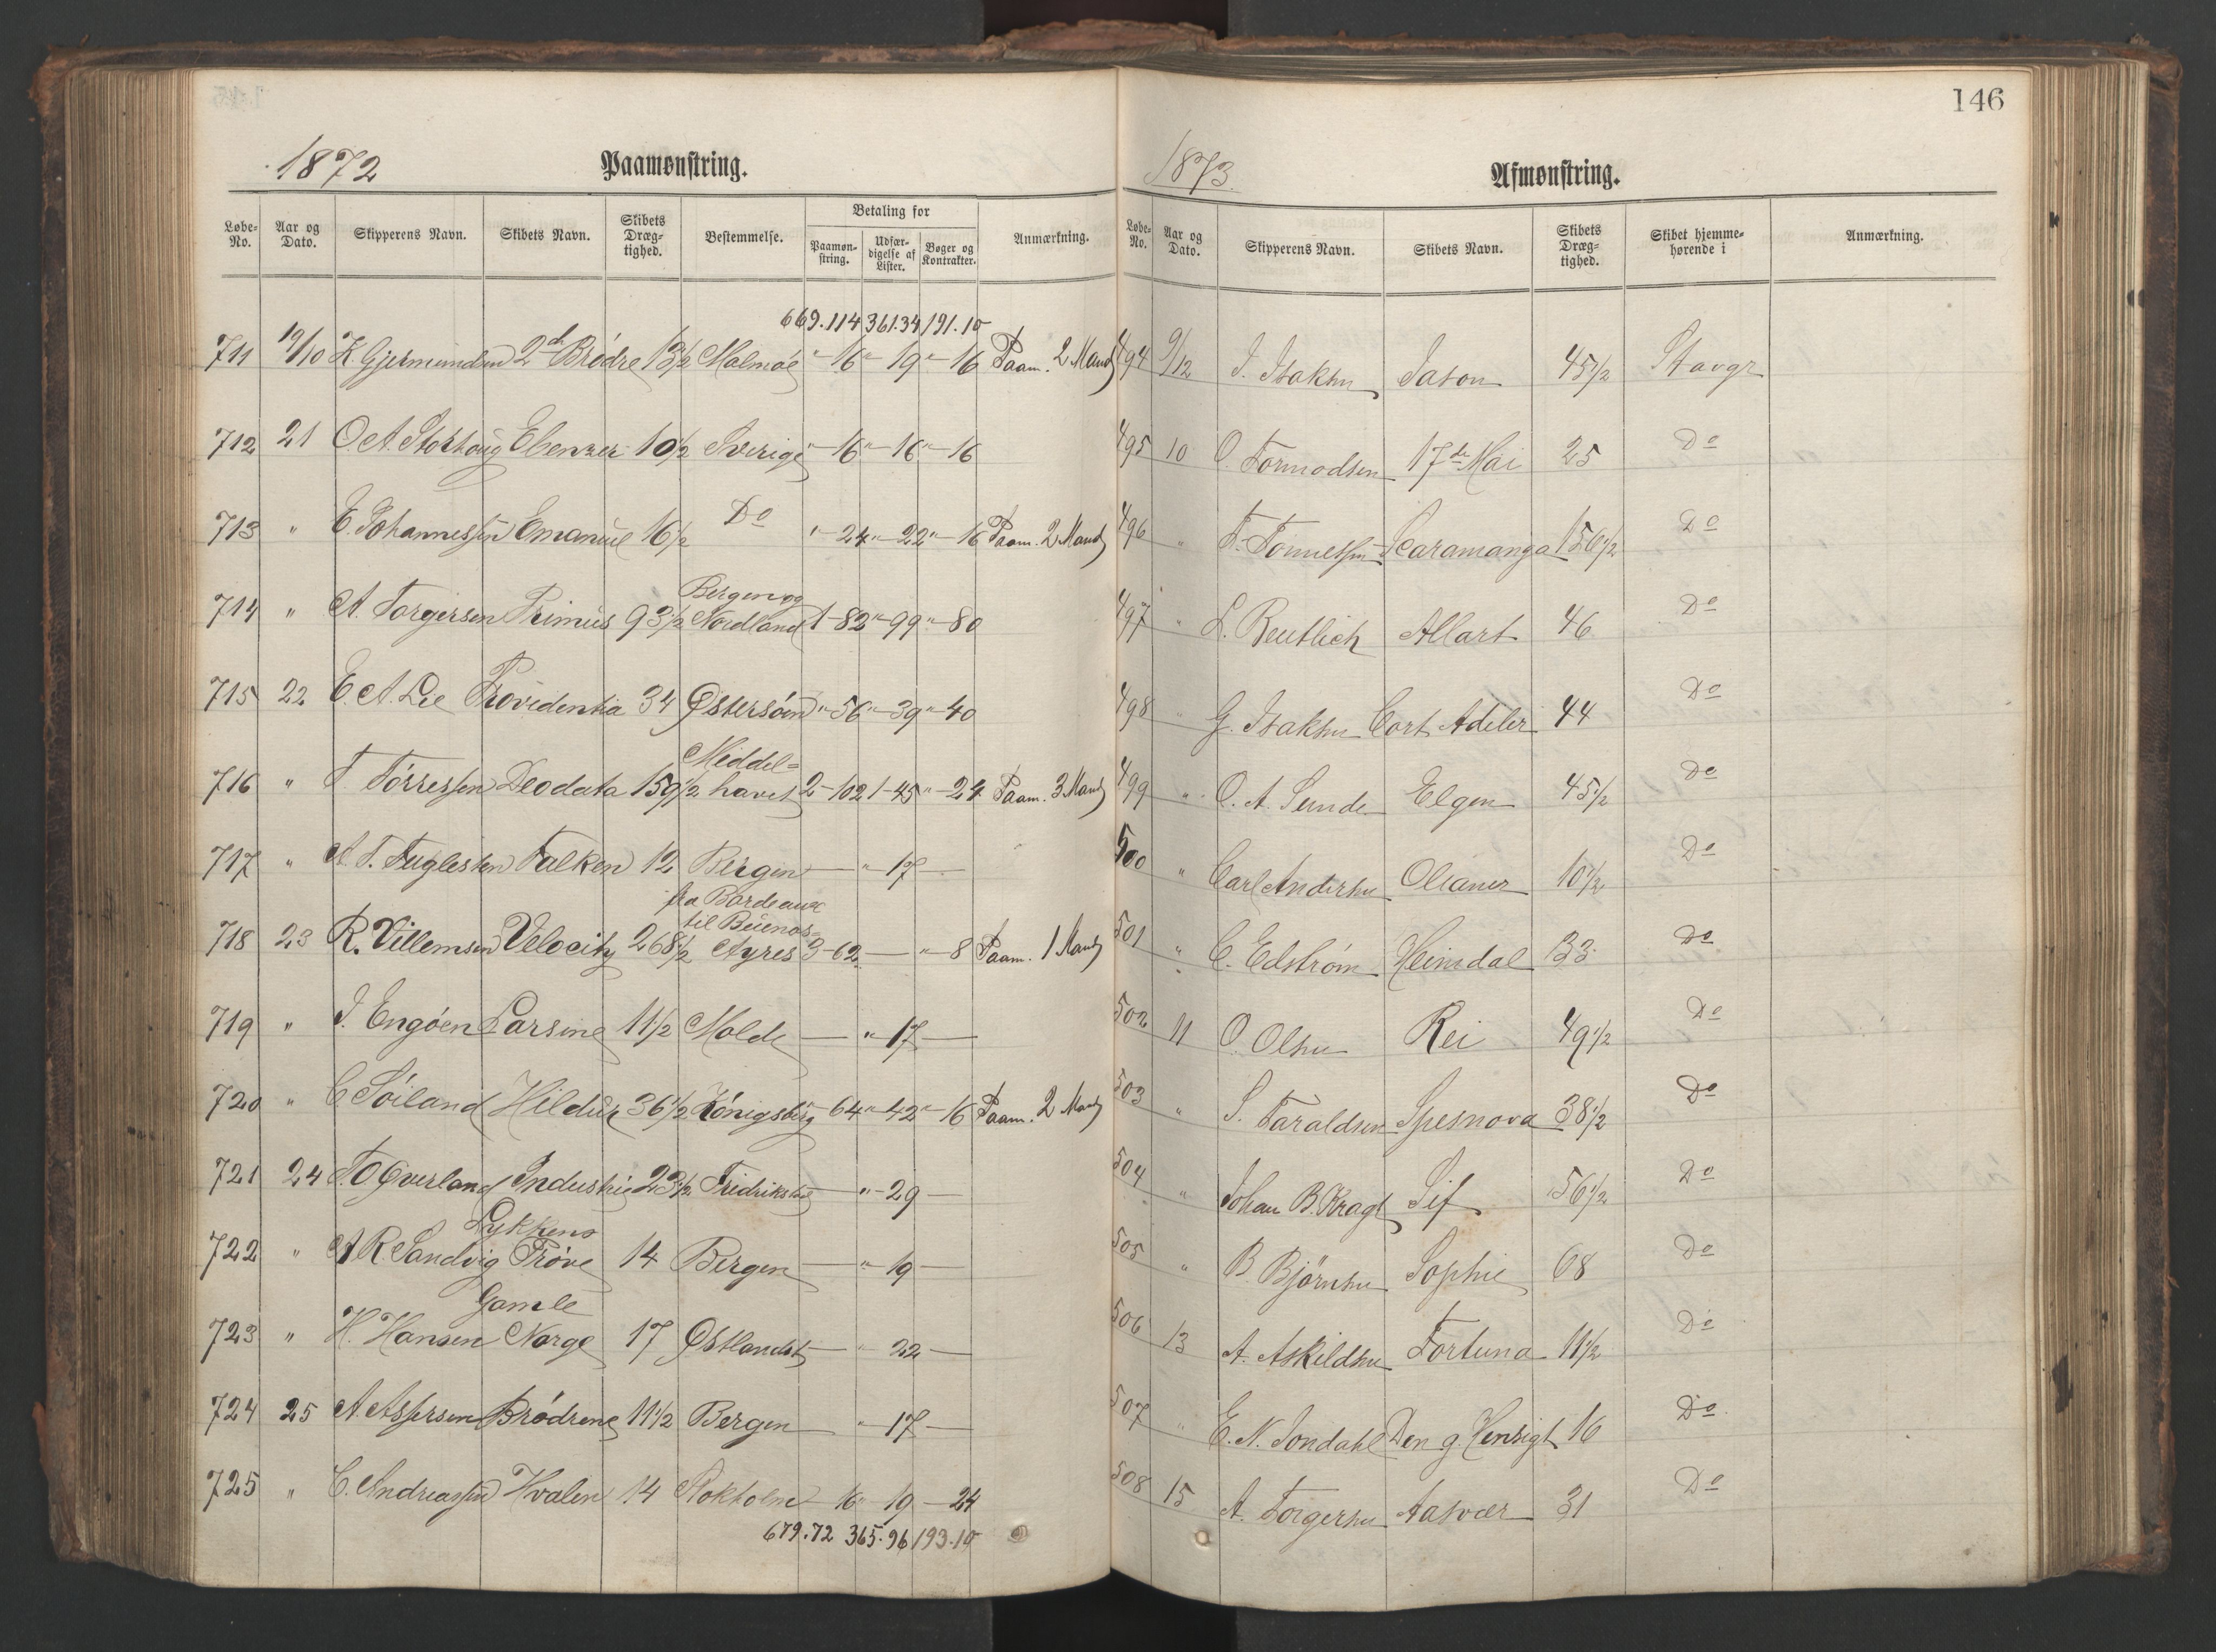 1872 Paamønstring.
Løbe-No. Aar og Dato. Skipperens Navn. Skibets Navn. Skibets Dræg-tighed. Bestemmelse. Betaling for Paamøn-string. Udfær-digelse af Lister. Bøger og Kontrakter. Anmærkning.
669.114 361.34 191.10
711 19/10 K. Gjermundsen 2de Brødre 13 1/2 Malmøe " 16 " 19 " 16 Paam. 2 Mand
712 21 O. A. Stokhaug Ebenzer 10 1/2 Sverige " 16 " 16 " 16
713 " E. Johannessen Emanuel 16 1/2 Do " 24 " 22 " 16 Paam. 2 Mand
Bergen og
714 " A. Torgersen Primus 93 1/2 Nordland 1-82 " 99 " 80
715 22 E. A. Lie Providentia 34 Østersøen " 56 " 39 " 40
Middel=
716 " T. Tørressen Deodata 159 1/2 havet 2-102 1-45 " 24 Paam. 3 Mand
717 " A. T. Fuglesten Falken 12 Bergen — " 17 —
fra Bordeaux
til Buenos=
718 23 R. Villemsen Velocity 268 1/2 Ayres 3-62 — " 8 Paam. 1 Mand
719 " J. Engøen Larsine 11 1/2 Molde — " 17 —
720 " C. Søiland Hildur 36 1/2 Königsberg " 64 " 42 " 16 Paam. 2 Mand
721 24 T O Øverland Industrie 23 1/2 Fredrikstad — " 29 —
Lykkens
722 " A R. Sandvig Prøve 14 Bergen — " 19 —
Gamle
723 " H. Hansen Norge 17 Østlandet — " 22 —
724 25 A. Aspersen Brødrene 11 1/2 Bergen — " 17 —
725 " C. Andreassen Hvalen 14 Stokholm — 16 " 19 — 24
679.72 365.96 193.10
146
1873. Afmønstring.
Løbe-No. Aar og Dato. Skipperens Navn. Skibets Navn. Skibets Dræg-tighed. Skibet hjemme-hørende i Anmærkning.
494 9/12 J. Isaksen Jason 45 1/2 Stavgr
495 10 O. Tormodsen 17de Mai 25 Do
496 " T. Tonnessen Scaramanga 156 1/2 Do
497 " L. Reutlich Allart 46 Do
498 " G. Isaksen Cort Adeler 44 Do
499 " O. A. Sunde Elgen 45 1/2 Do
500 " Carl Andersen Oleaner 10 1/2 Do
501 " C. Edstrøm Heimdal 33 Do
502 11 O. Olsen Rei 49 1/2 Do
503 " S. Taraldsen Spesnova 38 1/2 Do
504 " Johan B. Kragt Sif 56 1/2 Do
505 " B. Bjørnsen Sophie 68 Do
506 13 A. Askildsen Fortuna 11 1/2 Do
507 " E. N. Sondahl Den g. Hensigt 16 Do
508 15 A. Torgersen Aasvær 31 Do